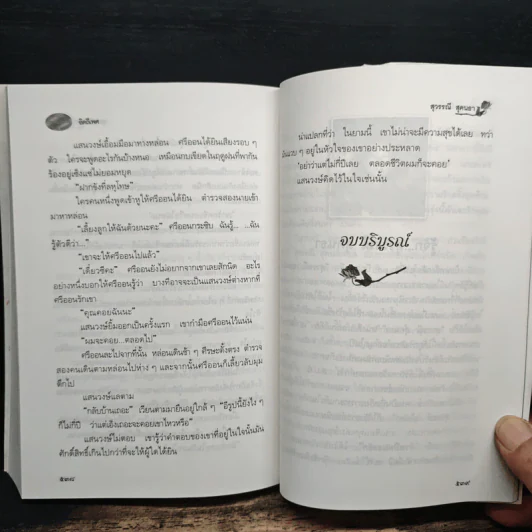 จิตปิเทศ
แสนวงษ์เอื้อมมือมาทางหล่อน ศรีออนได้ยินเสียงรอบ ๆ
ตัว ใครจะพูดอะไรกันบ้างหนอ เหมือนกบเขียดในฤดูฝนที่พากัน
ร้องอยู่เซ็งแซ่ไม่ยอมหยุด
“ฝากขังที่ลหุโทษ”
ใครคนหนึ่งพูดเข้าหูให้ศรีออนได้ยิน ตำรวจสองนายเข้า
มาหาหล่อน
“เลี้ยงลูกให้ฉันด้วยนะคะ” ศรีออนกระซิบ ฉันรู้... ...ฉัน
รู้ตัวดีว่า...”
“เขาจะให้ศรีออนไปแล้ว”
“เดี๋ยวซีคะ” ศรีออนยังไม่อยากจากเขาเลยสักนิด อะไร
อย่างหนึ่งบอกให้ศรีออนรู้ว่า บางทีอาจจะเป็นแสนวงษ์ต่างหากที่
ศรีออนรักเขา
“คุณคอยฉันนะ”
แสนวงษ์ยิ้มออกเป็นครั้งแรก เขากำมือศรีออนไว้แน่น
“ผมจะคอย...ตลอดไป”
ศรีออนละไปจากที่นั้น หล่อนเดินช้า ๆ ศีรษะตั้งตรง ตำรวจ
สองคนเดินตามหล่อนไปห่าง ๆ และจากนั้นศรีออนก็เลี้ยวลับมุม
ตึกไป
แสนวงษ์แลตาม
“กลับบ้านเถอะ” เวียนตามมายืนอยู่ใกล้ ๆ “อีรูปนี้ยังไง ๆ
ก็ไม่กี่ปี ว่าแต่เอ็งเถอะจะคอยเขาไหวหรือ”
แสนวงษ์ไม่ตอบ เขารู้ว่าคำตอบของเขาที่อยู่ในใจนั้นมัน
ศักดิ์สิทธิ์เกินไปกว่าที่จะให้ผู้ใดได้ยิน
๕๓๘
สุวรรณี สุคนธา
น่าแปลกที่ว่า ในยามนี้ เขาไม่น่าจะมีความสุขได้เลย ทว่า
มันแวบ ๆ อยู่ในหัวใจของเขาอย่างประหลาด
‘อย่าว่าแต่ไม่กี่ปีเลย ตลอดชีวิตผมก็จะคอย’
แสนวงษ์คิดไว้ในใจเช่นนั้น
จบบริบูรณ์
๕๓๙